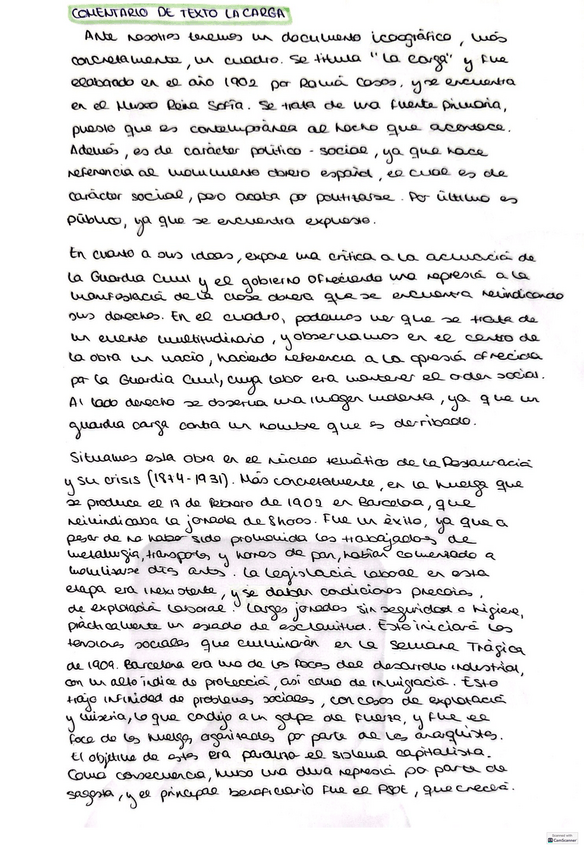 COMENTARIO DE TEXTO LA CARGA
Ante nosotros tenemos un documento icográfico, más
concretamente, un cuadro. Se titula "La carga" y fue
elaborado en el año 1902 por Ramón Casas, y se encuentra
en el Museo Reina Sofía. Se trata de una fuente primaria,
puesto que es contemporánea al hecho que acontece.
Además, es de carácter político-social, ya que hace
referencia al movimiento obrero español, el cual es de
carácter social, pero acaba por politizarse. Por último es
público, ya que se encuentra expuesto.
En cuanto a sus ideas, expone una crítica a la actuación de
la Guardia Civil y el gobierno ofreciendo una represión a la
manifestación de la clase obrera que se encuentra reivindicando
sus derechos. En el cuadro, podemos ver que se trata de
un evento multitudinario, y observamos en el centro de
la obra un vacío, haciendo referencia a la opresión ofrecida
por la Guardia Civil, cuya labor era mantener el orden social.
Al lado derecho se observa una imagen violenta, ya que un
guardia carga contra un hombre que es derribado.
Situamos esta obra en el núcleo temático de la Restauración
y su crisis (1874-1931). Más concretamente, en la huelga que
se produce el 17 de febrero de 1902 en Barcelona, que
reivindicaba la jornada de 8 horas. Fue un éxito, ya que a
pesar de no haber sido promovida los trabajadores de
metalurgia, transportes y hornos de pan, habían comenzado a
movilizarse días antes. La legislación laboral en esta
etapa era inexistente, y se daban condiciones precarias,
de explotación laboral y largas jornadas sin seguridad e higiene,
prácticamente un estado de esclavitud. Esto iniciará las
tensiones sociales que culminarán en la Semana Trágica
de 1909. Barcelona era uno de los focos del desarrollo industrial,
con un alto índice de protección, así como de inmigración. Esto
trajo infinidad de problemas sociales, con casos de explotación
y miseria, lo que condujo a un golpe de fuerza, y fue el
foco de las huelgas organizadas por parte de los anarquistas.
El objetivo de estas era paralizar el sistema capitalista.
Como consecuencia, hubo una dura represión por parte de
Sagasta, y el principal beneficiario fue el PSOE, que crecerá.
Scanned with
CamScanner